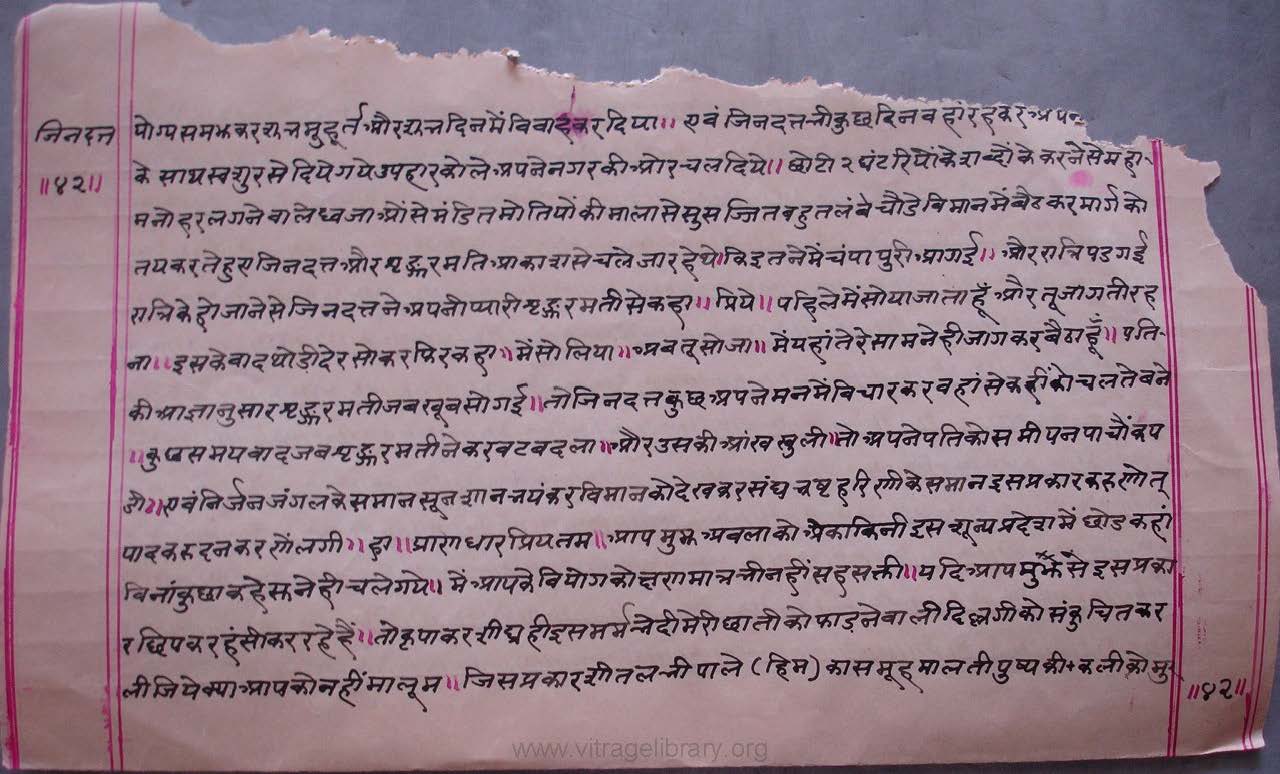 जिनदत्त
॥४२॥
योग्य समझकर शुभ मुहूर्त और शुभ दिन में विवाह कर दिया॥ एवं जिनदत्त भी कुछ दिन वहां रहकर अपन
के साथ स्वशुर से दिये गये उपहार को ले अपने नगर की ओर चल दिये॥ छोटी २ घंटरियों के शब्दों के करने से महा
मनोहर लगने वाले ध्वजाओं से मंडित मोतियों की माला से सुसज्जित बहुत लंबे चौडे विमान में बैठ कर मार्ग को
तय करते हुए जिनदत्त और शृङ्गारमति आकाश से चले जा रहे थे कि इतने में चंपापुरी आगई॥ और रात्रि पड गई
रात्रि के हो जाने से जिनदत्त ने अपनी प्यारी शृङ्गारमती से कहा॥ प्रिये॥ पहिले में सोया जाता हूँ और तू जागती रह
ना॥ इसके बाद थोडी देर सोकर फिर कहा॥ में सो लिया॥ अब तू सोजा॥ में यहां तेरे सामने ही जाग कर बैठा हूँ॥ पति
की आज्ञानुसार शृङ्गारमती जब खूब सो गई॥ तो जिनदत्त कुछ अपने मन में विचार कर वहां से कहीं को चलते बने
॥ कुछ समय बाद जब शृङ्गारमती ने करवट बदला॥ और उसकी आंख खुली॥ तो अपने पति को समीप न पा चौंक प
डी॥ एवं निर्जन जंगल के समान सून शान भयंकर विमान को देखकर संघ भ्रष्ट हरिणी के समान इस प्रकार करुणोत्
पादक रुदन करणें लगी॥ हा॥ प्राणाधार प्रियतम॥ आप मुझ अबला को अैकाकिनी इस शून्य प्रदेश में छोड कहां
विनां कुछ कहे सुने ही चले गये॥ में आपके वियोग को क्षणमात्र भी नहीं सह सक्ती॥ यदि आप मुझे से इस प्रका
र छिपकर हंसी कर रहे हैं॥ तो कृपा कर शीघ्र ही इस मर्मभेदी मेरी छाती को फाडने वाली दिल्लगी को संकुचित कर
लीजिये क्या आपको नहीं मालूम॥ जिस प्रकार शीतल भी पाले (हिम) का समूह मालती पुष्प की+कली को मु
॥४२॥
www.vitragelibrary.org